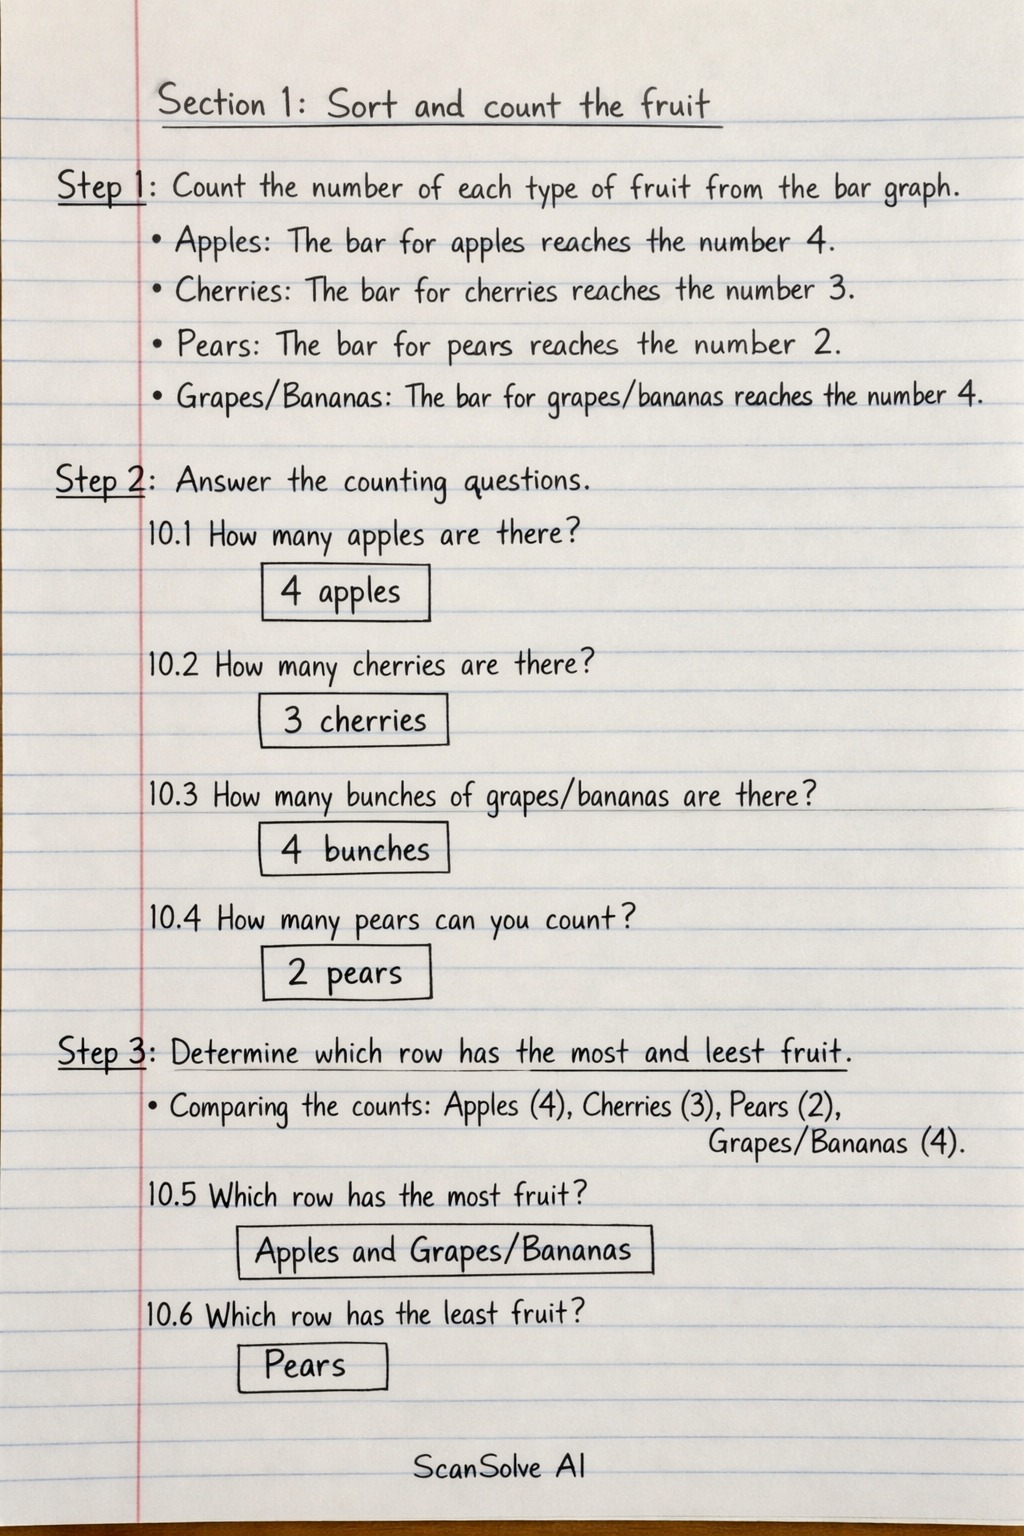 Section 1: Sort and count the fruit
Step 1: Count the number of each type of fruit from the bar graph.
• Apples: The bar for apples reaches the number 4.
• Cherries: The bar for cherries reaches the number 3.
• Pears: The bar for pears reaches the number 2.
• Grapes/Bananas: The bar for grapes/bananas reaches the number 4.
Step 2: Answer the counting questions.
10.1 How many apples are there?
4 apples
10.2 How many cherries are there?
3 cherries
10.3 How many bunches of grapes/bananas are there?
4 bunches
10.4 How many pears can you count?
2 pears
Step 3: Determine which row has the most and leest fruit.
• Comparing the counts: Apples (4), Cherries (3), Pears (2),
Grapes/Bananas (4).
10.5 Which row has the most fruit?
Apples and Grapes/Bananas
10.6 Which row has the least fruit?
Pears
ScanSolve AI